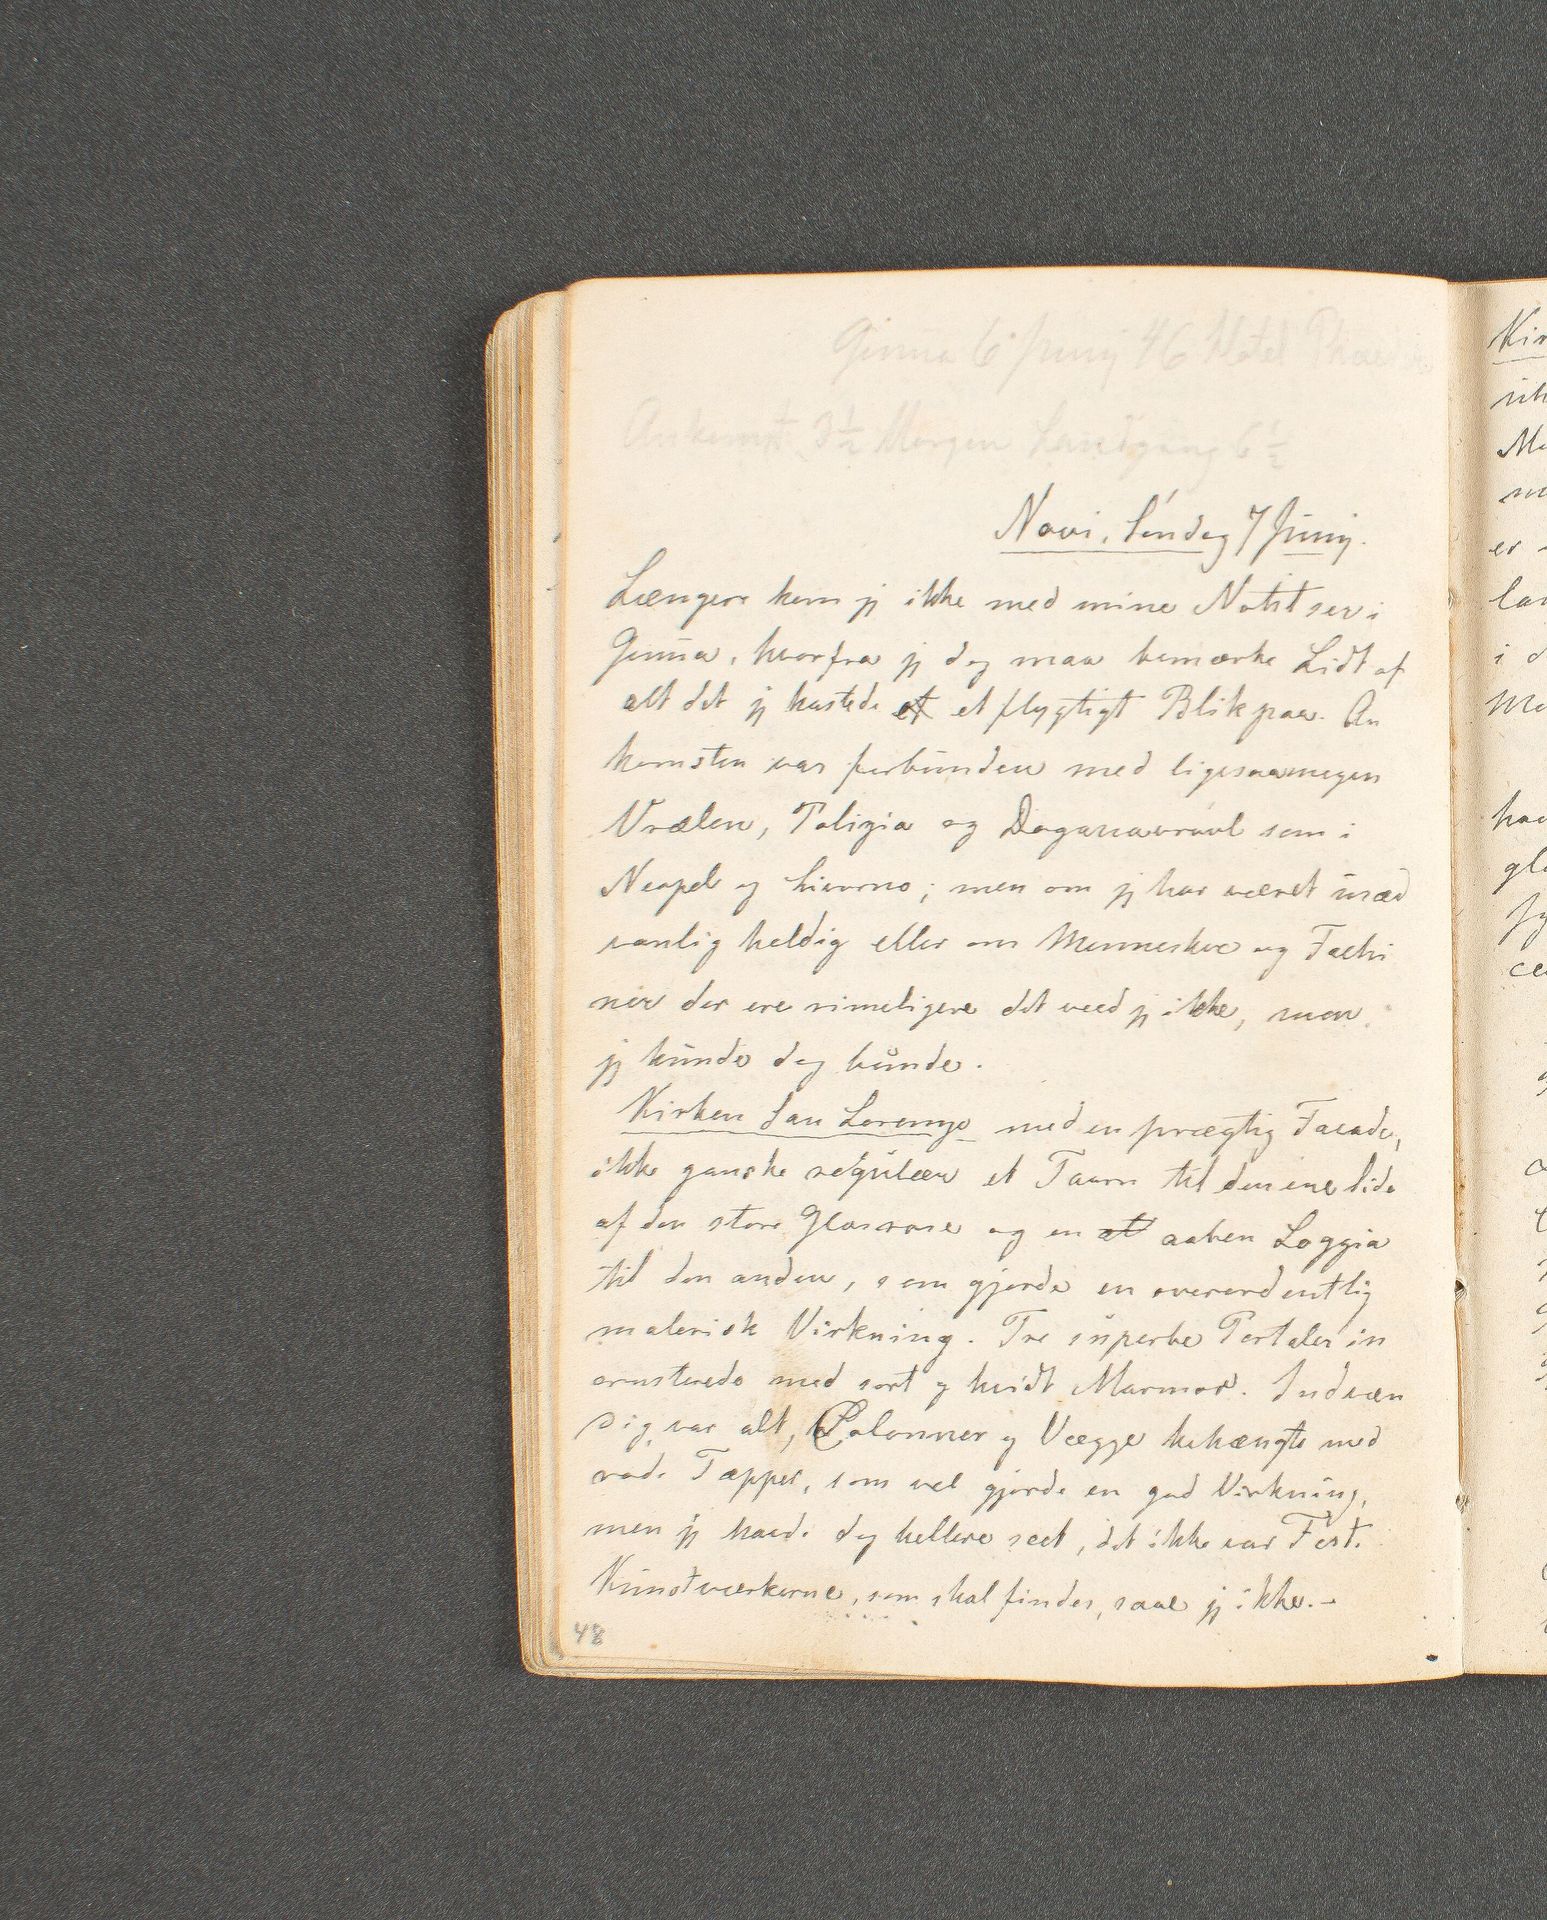 Genua 6 Juny 46 Hotel
Ankomst 3½ Morgen Landgang 6½
Novi, Søndag 7 Juny.
Længere kom jg ikke med mine Notitser i
Genua, hvorfra jg dog maa bemærke Lidt af
alt det jg kastede et et flygtigt Blik paa. An
komsten var forbunden med ligesaamegen
Vrælen, Polizia og Doganavrøvl som i
Neapel og Livorno; men om jg har været usæd
vanlig heldig eller om Mennesker og Fachi
ner der ere rimeligere det veed jg ikke, men
jg kunde dog bunde.
Kirken San Lorenzo med en prægtig Facade,
ikke ganske regulær et Taarn til den ene Side
af den store Glasrose og en et aaben Loggia
til den anden, som gjorde en overordentlig
malerisk Virkning. Tre superbe Portaler in
crusterede med sort og hvidt Marmor. Indvæn
dig var alt, Colonner og Vægge behængte med
røde Tæpper, som vel gjorde en god Virkning,
men jg havde dog hellere seet, det ikke var Fest.
Kunstværkerne, som skal findes, saae jg ikke.-
48
Kir
er
i